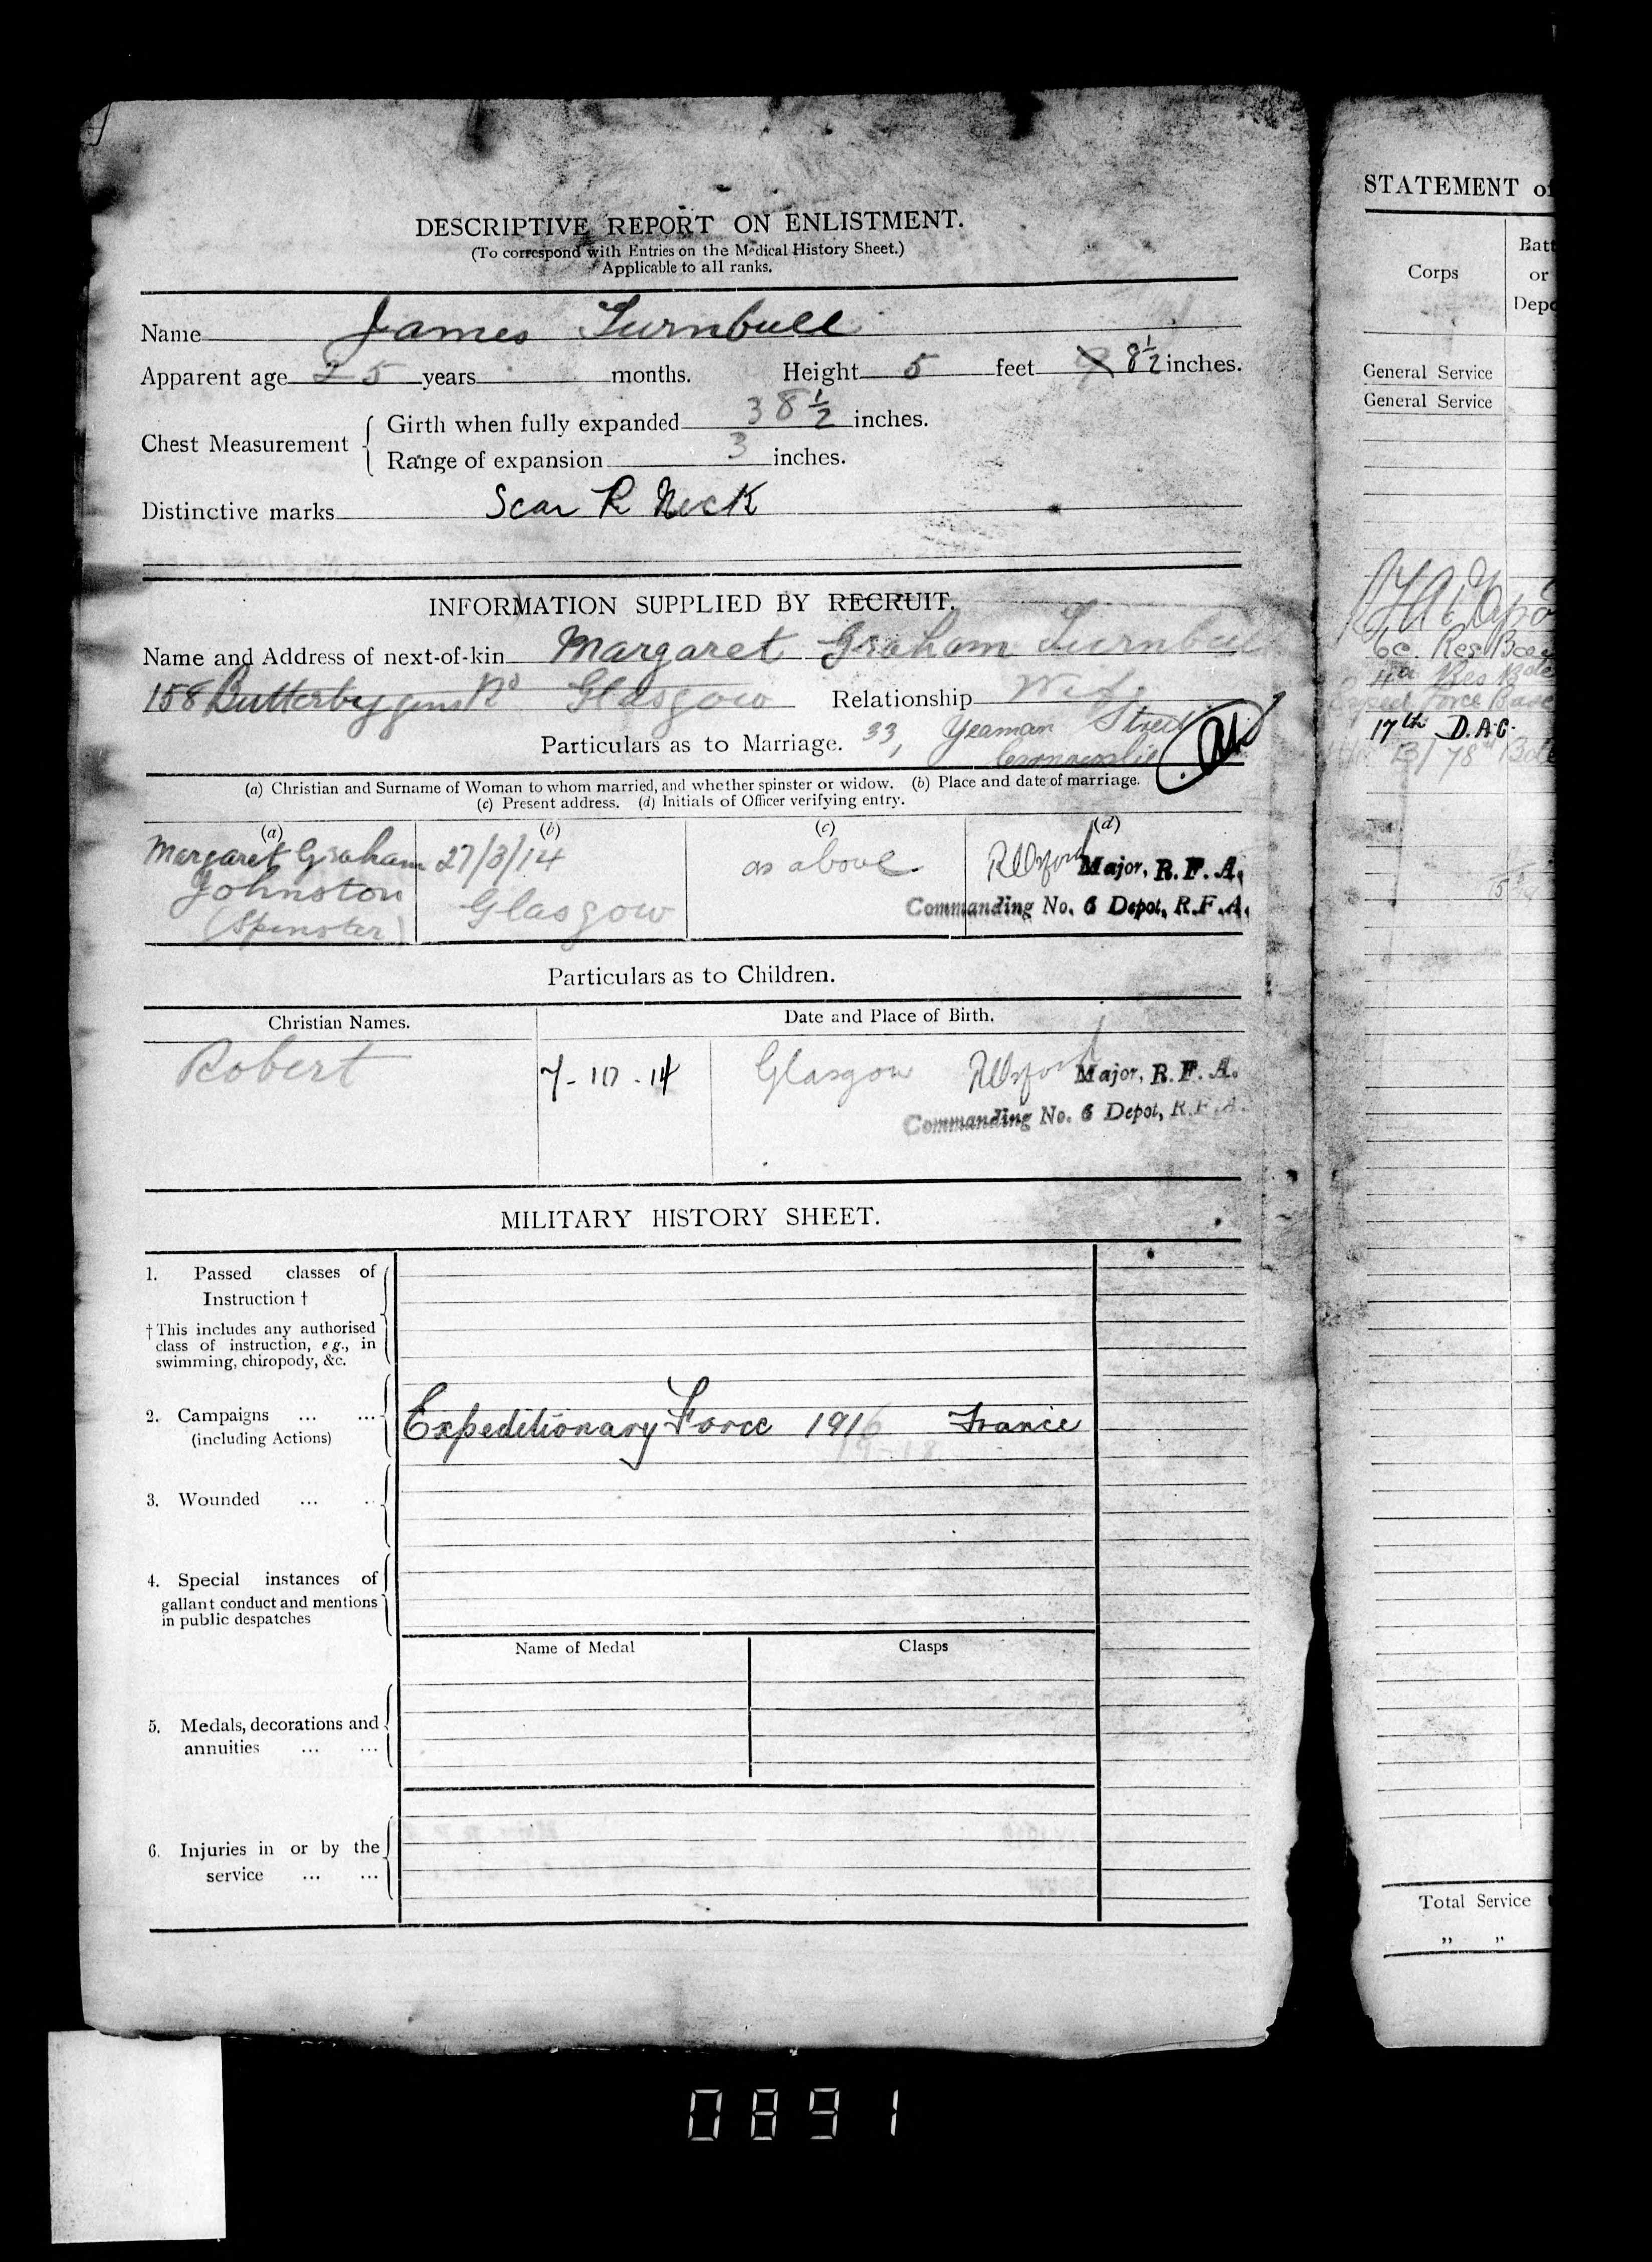 DESCRIPTIVE REPORT ON ENLISTMENT.
(To correspond with Entries on the Medical History Sheet.)
Applicable to all ranks.
Name James Turnbull
Apparent age 25 years months. Height 5 feet 8½ inches.
Chest Measurement
Girth when fully expanded 38½ inches.
Range of expansion 3 inches.
Distinctive marks Scar R Neck
INFORMATION SUPPLIED BY RECRUIT.
Name and Address of next-of-kin Margaret Graham Turnbull
158 Glasgow Relationship Wife
Particulars as to Marriage. 33, Yeaman Street
(a) Christian and Surname of Woman to whom married, and whether spinster or widow. (b) Place and date of marriage.
(c) Present address. (d) Initials of Officer verifying entry.
(a) (b) (c) (d)
Margaret Graham 27/3/14 as above Major, R. F. A.
Johnston Glasgow Commanding No. 6 Depot, R.F.A.
(Spinster)
Particulars as to Children.
Christian Names. Date and Place of Birth.
Robert 7-10-14 Glasgow Major, R. F. A.
Commanding No. 6 Depot, R.F.A.
MILITARY HISTORY SHEET.
1. Passed classes of
Instruction †
† This includes any authorised
class of instruction, e g., in
swimming, chiropody, &c.
2. Campaigns ... ...
(including Actions)
Expeditionary Force 1916 France
3. Wounded ... ..
4. Special instances of
gallant conduct and mentions
in public despatches
Name of Medal Clasps
5. Medals, decorations and
annuities ... ...
6. Injuries in or by the
service ... ...
STATEMENT of
Corps
Batt
or
Depo
General Service
General Service
6c. Res
17th D.A.C.
B/78
Total Service
„ „
0891